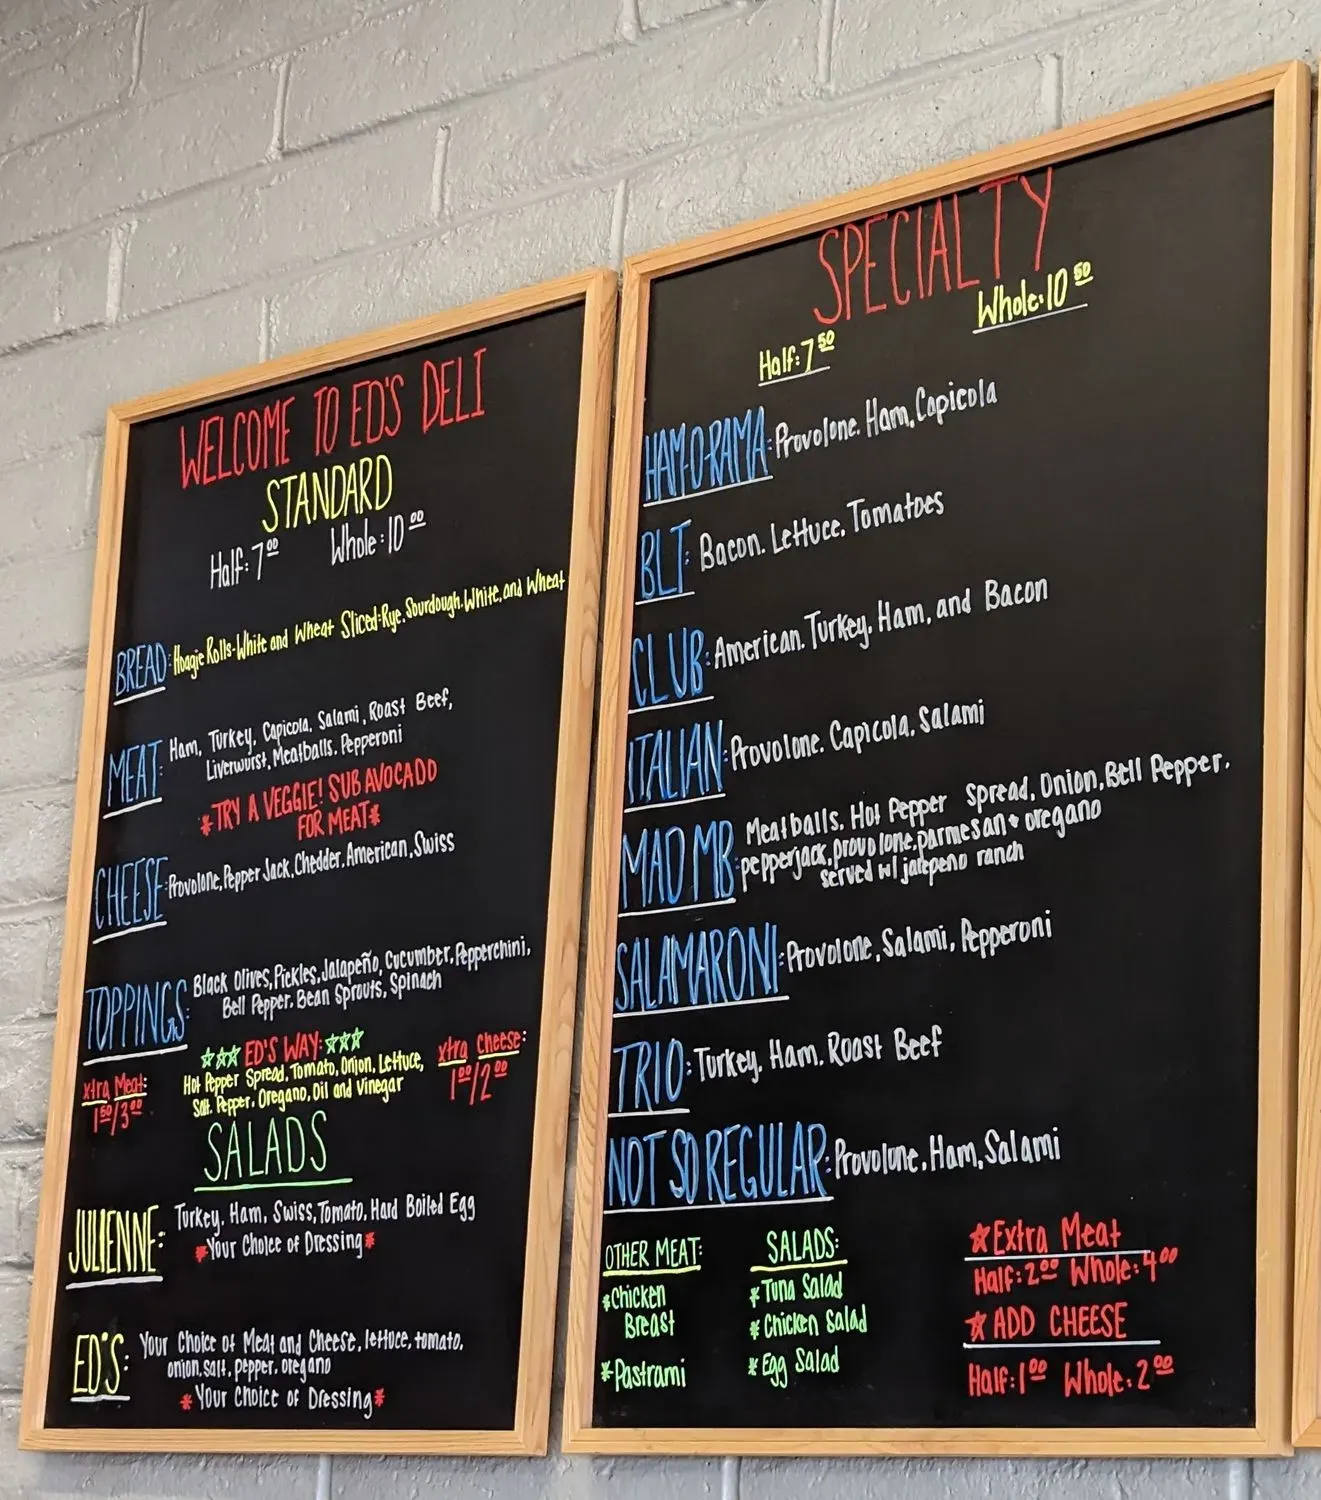 WELCOME TO ED'S DELI
STANDARD
Half: 7.00 Whole: 10.00
BREAD: Hoagie Rolls-White and Wheat Sliced-Rye, Sourdough, White, and Wheat
MEAT: Ham, Turkey, Capicola, Salami, Roast Beef,
Liverwurst, Meatballs, Pepperoni
*TRY A VEGGIE! SUB AVOCADO
FOR MEAT*
CHEESE: Provolone, Pepper Jack, Chedder, American, Swiss
TOPPINGS: Black Olives, Pickles, Jalapeño, Cucumber, Pepperchini,
Bell Pepper, Bean Sprouts, Spinach
ED'S WAY:
Hot Pepper Spread, Tomato, Onion, Lettuce,
Salt, Pepper, Oregano, Oil and Vinegar
xtra Meat:
1.50/3.00
xtra Cheese:
1.00/2.00
SALADS
JULIENNE: Turkey, Ham, Swiss, Tomato, Hard Boiled Egg
*Your Choice of Dressing*
ED'S: Your Choice of Meat and Cheese, lettuce, tomato,
onion, salt, pepper, oregano
*Your Choice of Dressing*
SPECIALTY
Half: 7.50 Whole: 10.50
HAM-O-RAMA: Provolone, Ham, Capicola
BLT: Bacon, Lettuce, Tomatoes
CLUB: American, Turkey, Ham, and Bacon
ITALIAN: Provolone, Capicola, Salami
MAD MB: Meatballs, Hot Pepper Spread, Onion, Bell Pepper,
pepperjack, provolone, parmesan + oregano
served w/ jalepeno ranch
SALAMARONI: Provolone, Salami, Pepperoni
TRIO: Turkey, Ham, Roast Beef
NOT SO REGULAR: Provolone, Ham, Salami
OTHER MEAT:
*Chicken
Breast
*Pastrami
SALADS:
*Tuna Salad
*Chicken Salad
*Egg Salad
☆Extra Meat
Half: 2.00 Whole: 4.00
☆ADD CHEESE
Half: 1.00 Whole: 2.00